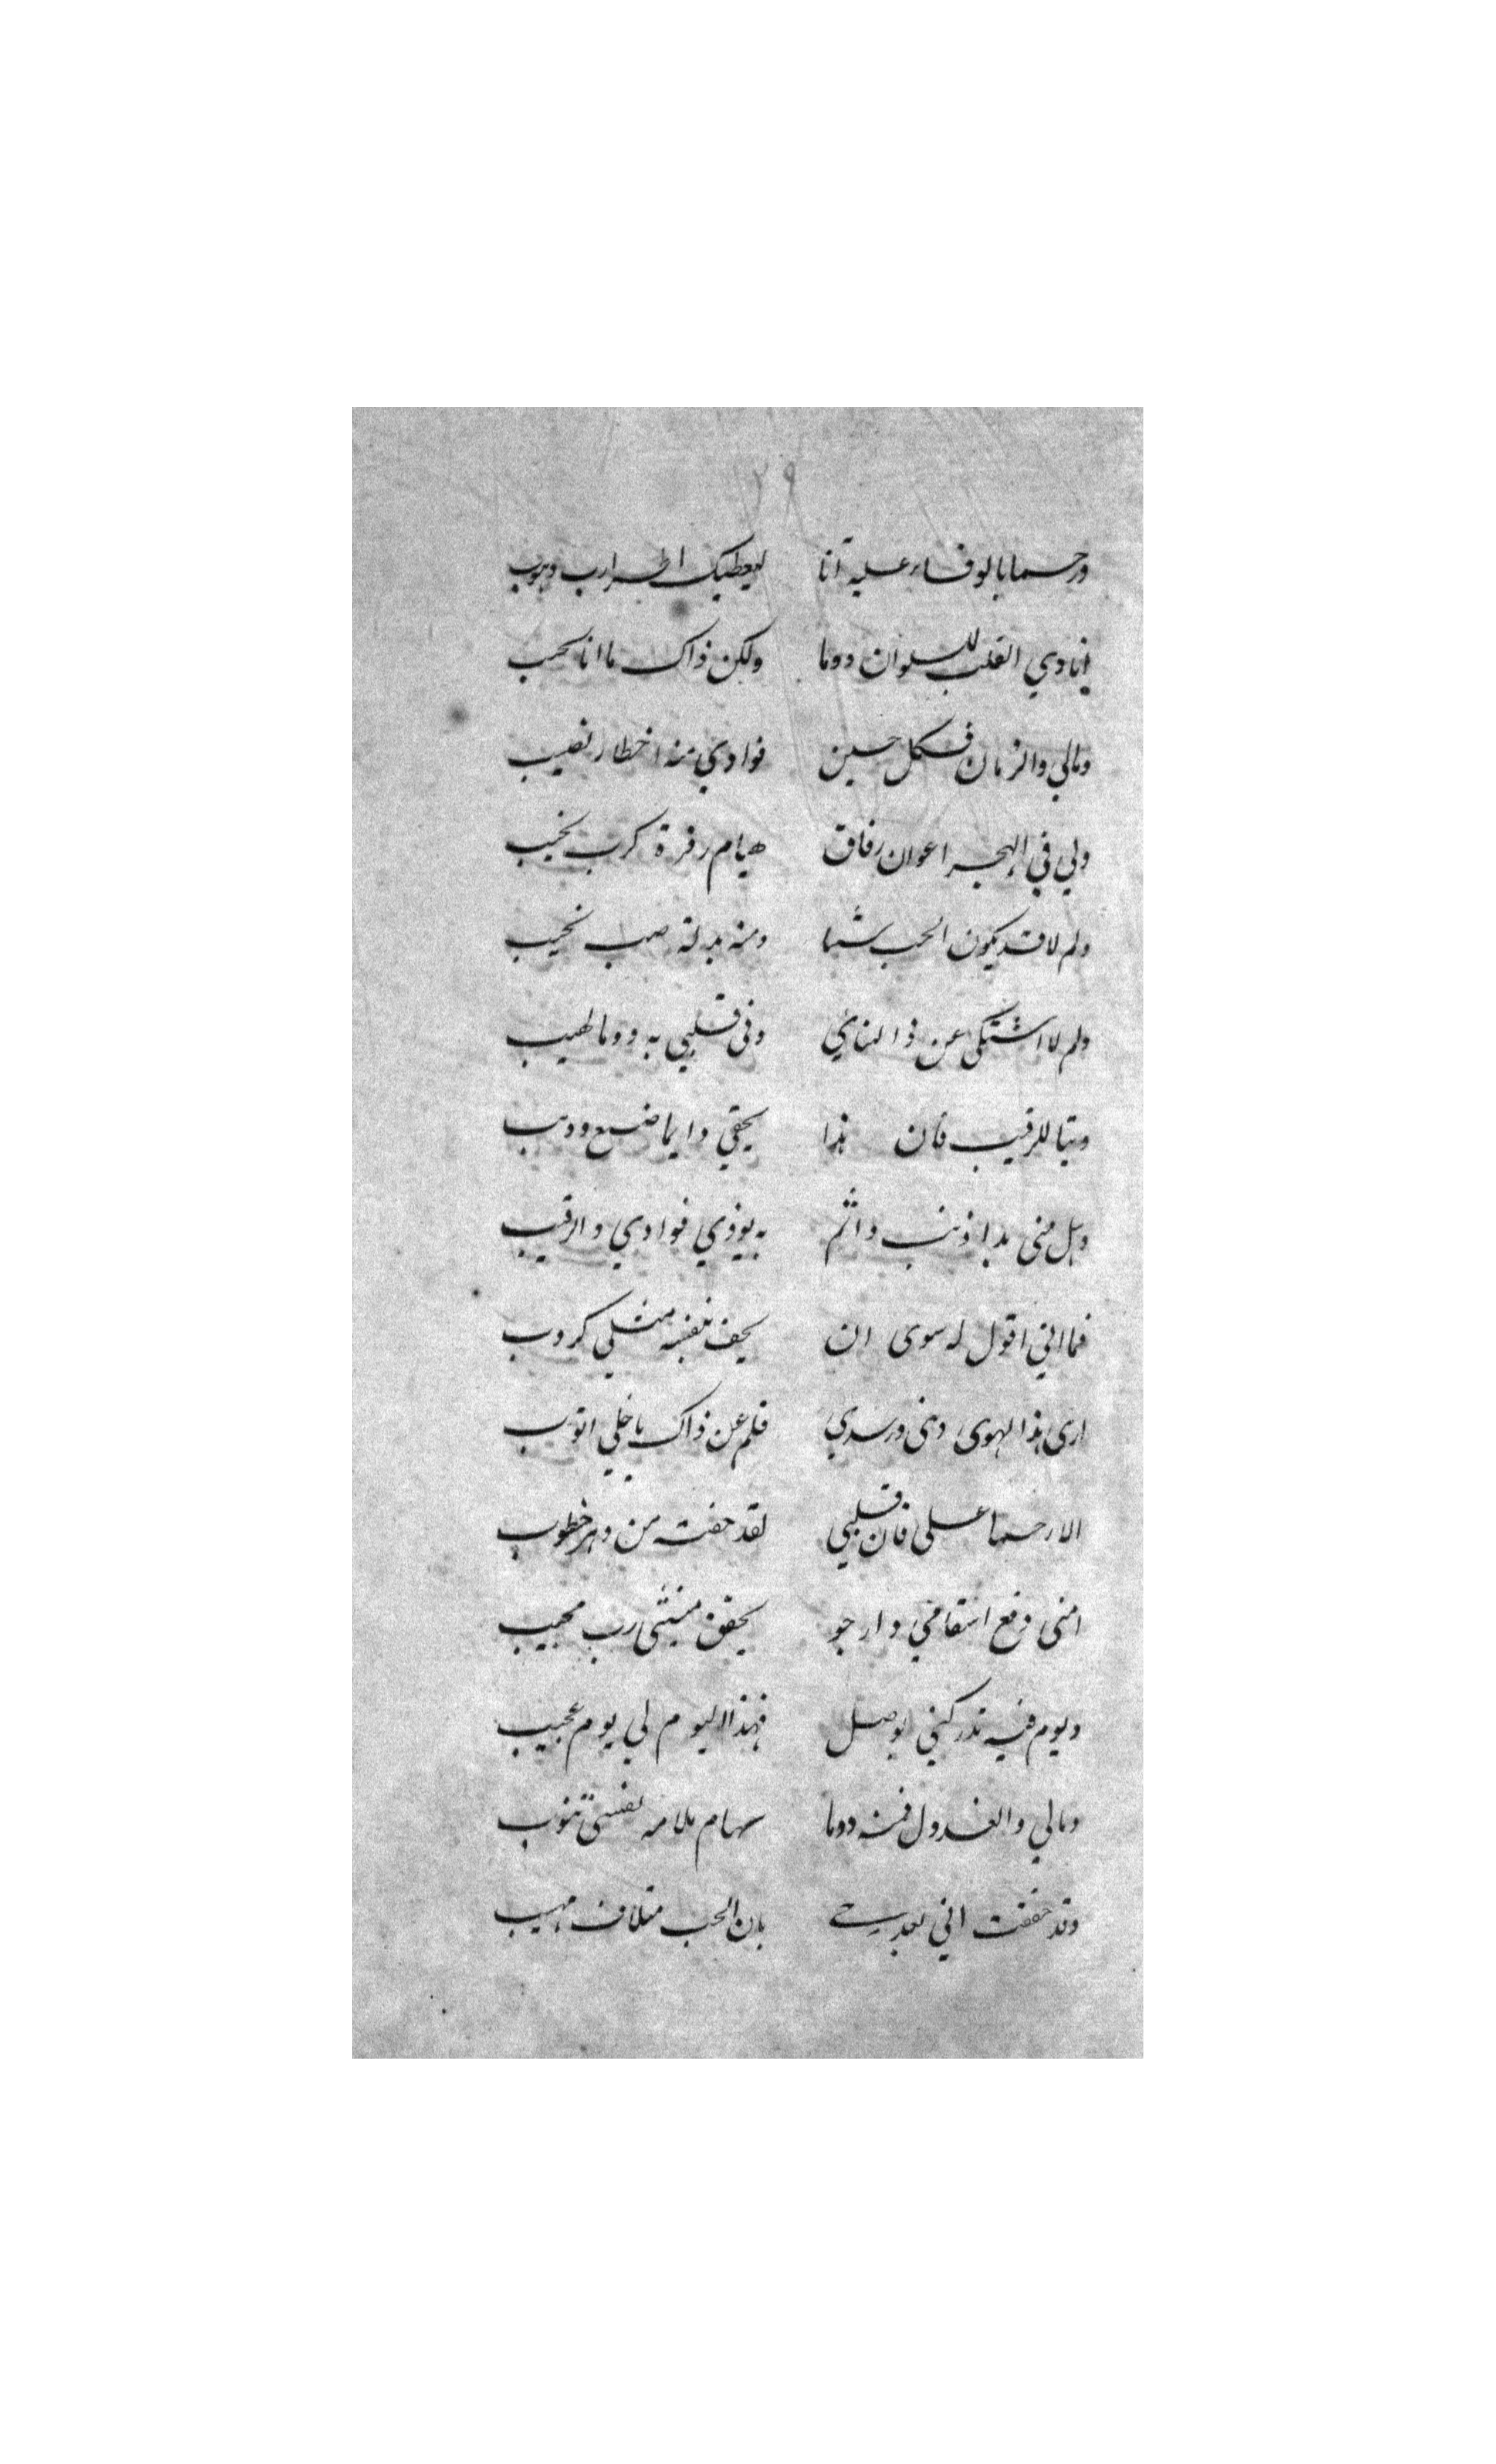 ٢٩
ورحما بالوفاء عليه آنا ليعطيك رب وهوب
انادي القلب للسلوان دوما ولكن ذاك ما انا بحب
ومالي والزمان فكل حين فوادي منه اخطار نصيب
ولي في الهجر اعوان رفاق هيام زفرة كرب نحيب
ولم لا قد يكون الحب شبا ومنه بدلة صب نحيب
ولم لا اشتكى عن ذا التنايي وفى قلبي به دوما لهيب
وتبا للرقيب فان هذا يحقي دايما ضبع وديب
وهل منى بدا ذنب واثم به يوذي فوادي والرقيب
فما اني اقول له سوى ان يحف بنفسه مثلي كروب
ارى هذا لهوى دينى ورشدي فلم عن ذاك يا خلي اتوب
الا رحما على فان قلبي لقد حفت من دهر خطوب
امنى دفع اسقامي وارجو يحقق منيتى رب مجيب
ويوم فيه تدركني بوصل فهذا اليوم لي يوم عجيب
ومالي والعذول فمنه دوما سهام ملامه نفسى تنوب
وقد حققت اني بعد بان الحب متلاف مهيب